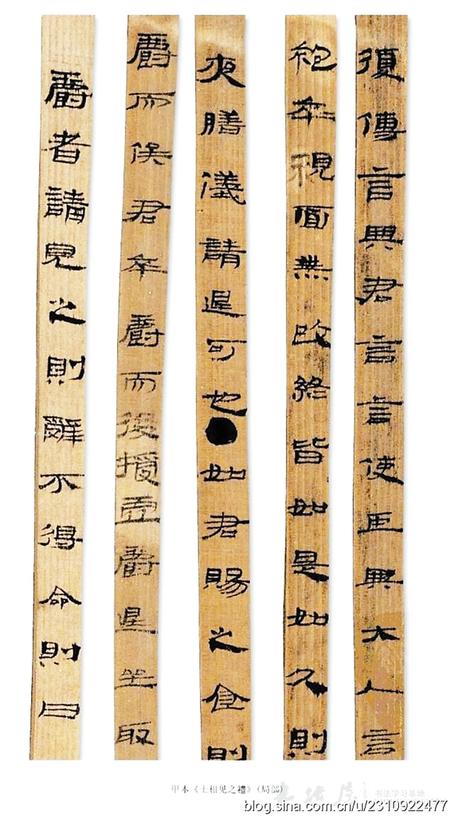 後傳言與君言言使臣與大人言
袍卒視面無改終皆如是如父則
夜膳儀請退可也●如君賜之食則
爵而俟君卒爵而後授虛爵退坐取
爵者請見之則辭不得命則曰
甲本《士相见之禮》(局部)
书法学习基地
blog.sina.com.cn/u/2310922477